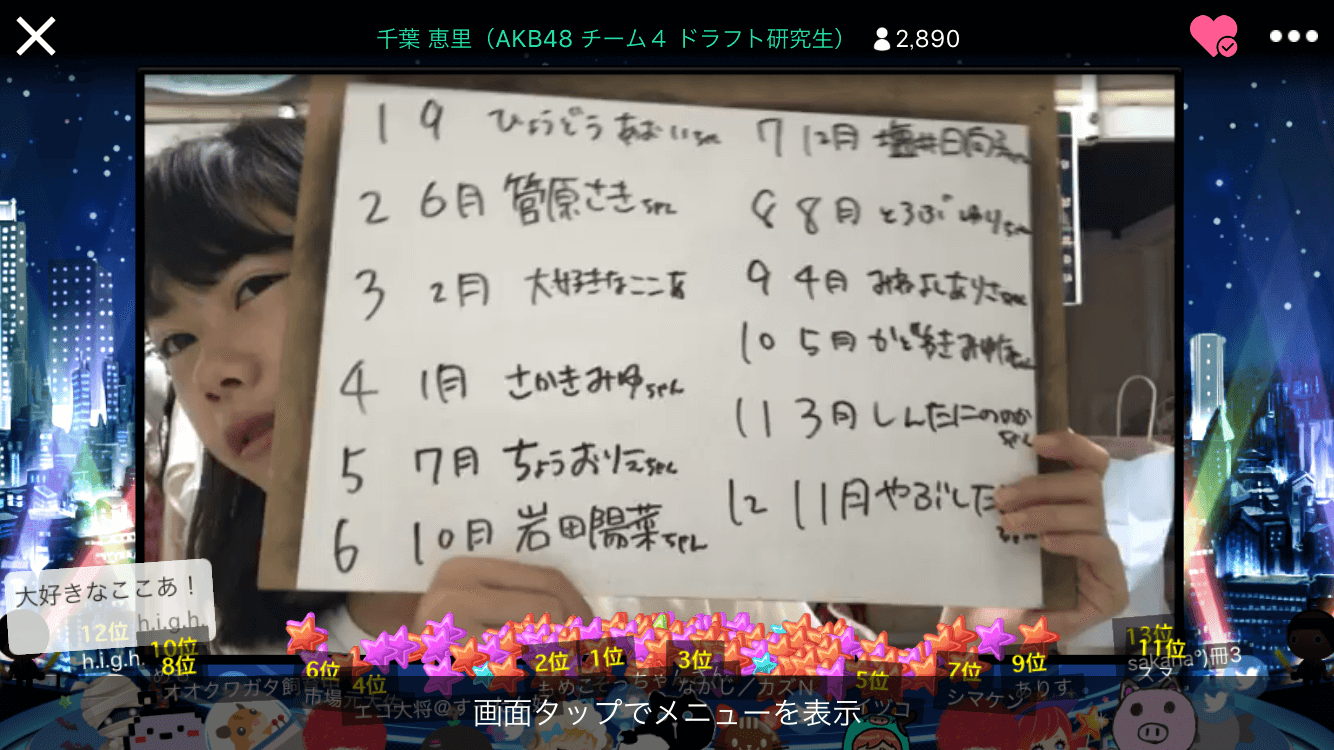 千葉 恵里（AKB48 チーム４ ドラフト研究生） 2,890
1 9 ひょうどうあおいちゃん
2 6月 管原さきちゃん
3 2月 大好きなここあ
4 1月 さかきみゆちゃん
5 7月 ちょうおりえちゃん
6 10月 岩田陽菜ちゃん
7 12月 塩井日向子ちゃん
8 8月 とろぶゆりちゃん
9 4月 みねよしありさちゃん
10 5月 かどわきみゆなちゃん
11 3月 しんたにののかちゃん
12 11月 やぶした
大好きなここあ！
h.i.g.h.
12位
h.i.g.h.
10位
8位
オオクワガタ飼
6位
市場
4位
エゴ大将@す
2位
1位
3位
ながじ／カズN
5位
イヅコ
7位
シマケン
9位
ありす
13位
11位
sakana°)冊3
スヌ
画面タップでメニューを表示